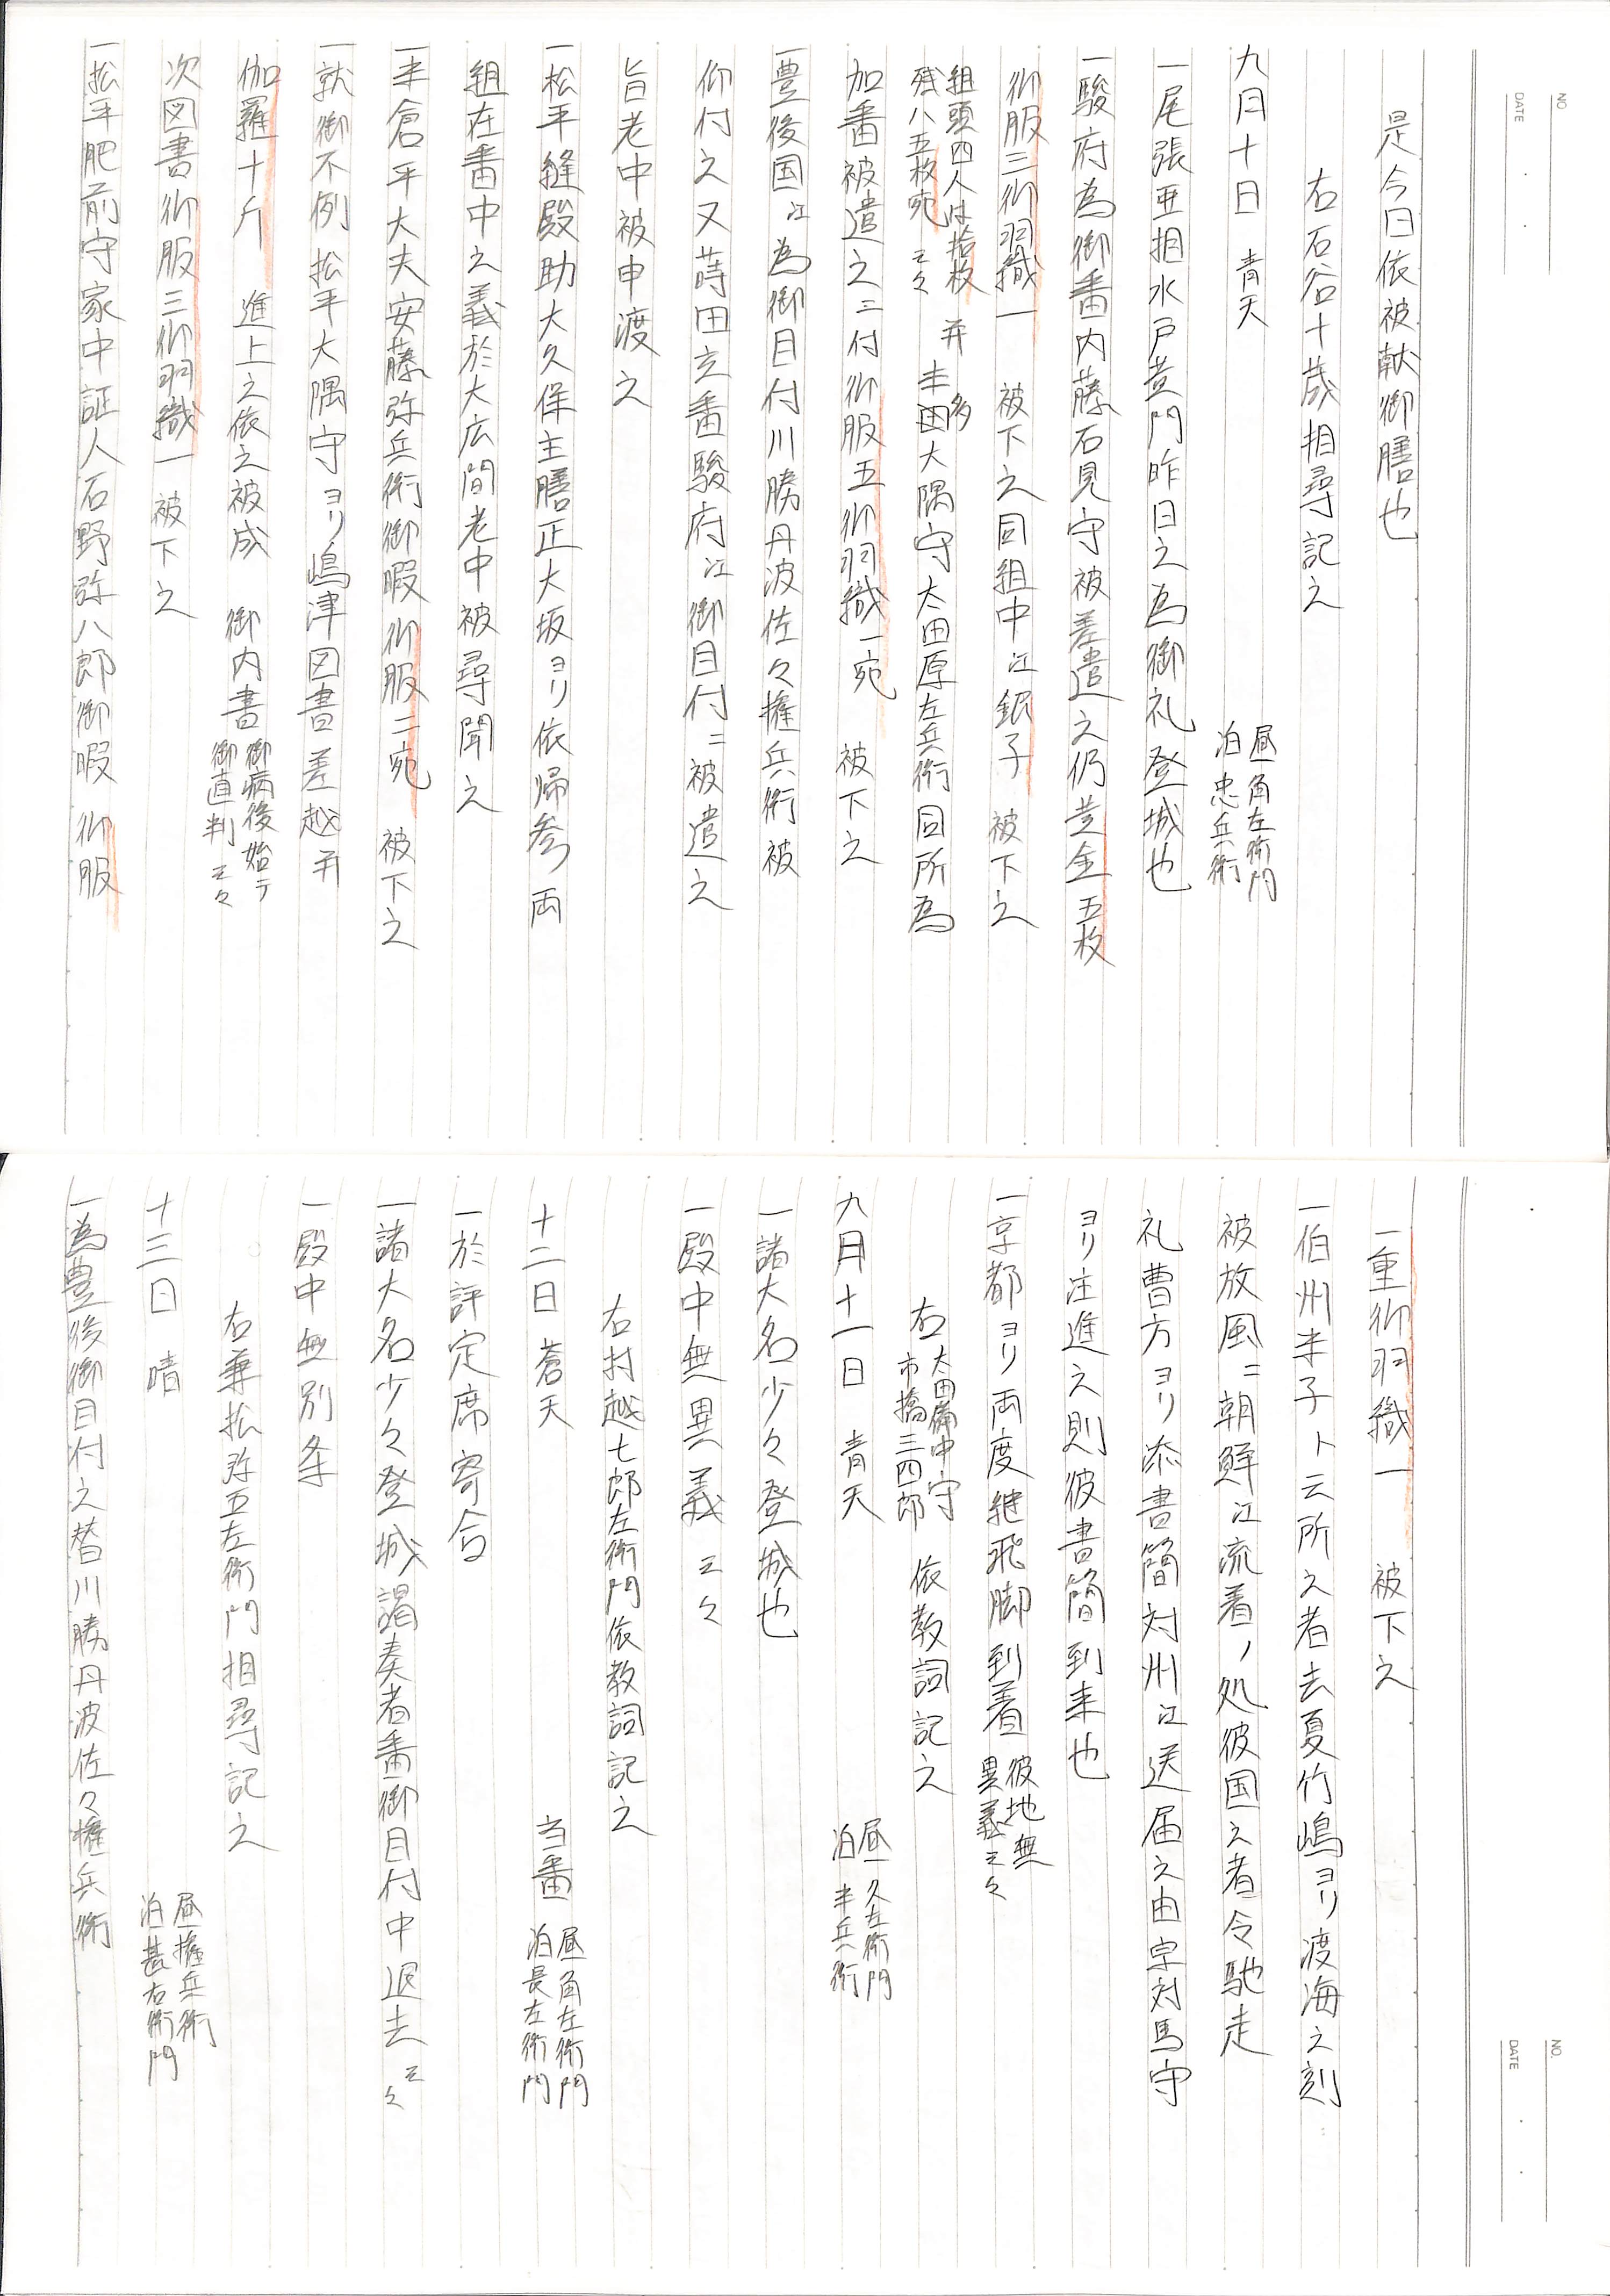 NO.
DATE
是今日依被献御膳也
右石谷十蔵相尋記之
九月十日 青天 昼角左衛門
泊忠兵衛
一尾張亜相水戸黄門昨日之為御礼登城也
一駿府為御番内藤石見守被差遣之仍黄金五枚
御服三御羽織一 被下之同組中江銀子 被下之
組頭四人は拾枚
残八五枚宛云々
并半田大隅守太田原左兵衛同所為
多
加番被遣之ニ付御服五御羽織一宛 被下之
豊後国江為御目付川勝丹波佐々権兵衛被
仰付之又蒔田玄番駿府江御目付ニ被遣之
旨老中被申渡之
一松平縫殿助大久保主膳正大坂ヨリ依帰参両
組在番中之義於大広間老中被尋聞之
一半倉平大夫安藤弥兵衛御暇御服二宛 被下之
一就御不例松平大隅守ヨリ嶋津図書差越并
伽羅十斤 進上之依之被成 御内書 御病後始テ
御直判云々
次図書御服三御羽織一被下之
一松平肥前守家中証人石野弥八郎御暇御服
NO.
DATE
一重御羽織一 被下之
一伯州米子ト云所之者去夏竹嶋ヨリ渡海之刻
被放風ニ朝鮮江流着ノ処彼国之者令馳走
礼曹方ヨリ添書簡対州江送届之由宗対馬守
ヨリ注進之則彼書簡到来也
一京都ヨリ両度継飛脚到着 彼地無
異義云々
右 太田備中守
市橋三四郎 依教詞記之
九月十一日 青天 昼久左衛門
泊半兵衛
一諸大名少々登城也
一殿中無異義云々
右村越七郎左衛門依教詞記之
十二日 蒼天 当番 昼角左衛門
泊長左衛門
一於評定席寄合
一諸大名少々登城謁奏者番御目付中退去云々
一殿中無別条
右兼松弥五左衛門相尋記之
十三日 晴 昼権兵衛
泊甚右衛門
一為豊後御目付之替川勝丹波佐々権兵衛